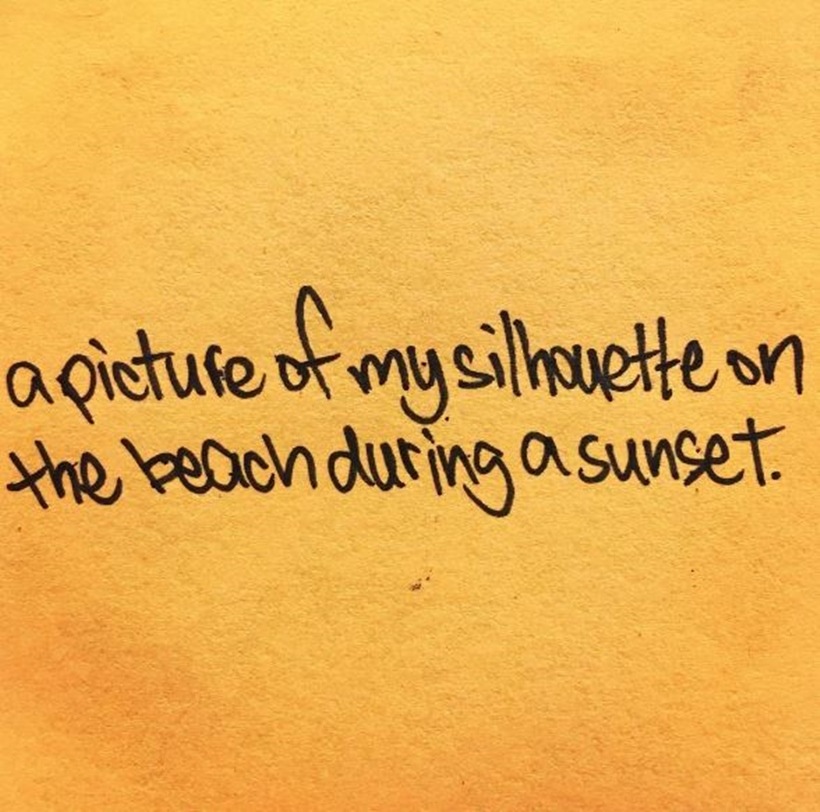 a picture of my silhouette on
the beach during a sunset.